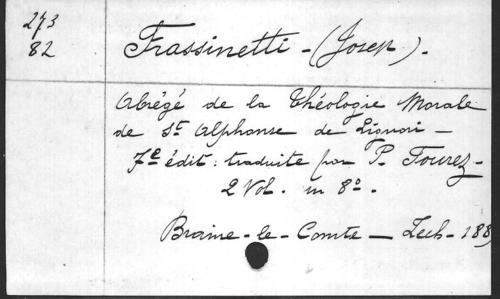 273
82
Frassinetti - (Josep).
Abrégé de la Théologie Morale
de St. Alphonse de Liguori -
7e édit: traduite par P. Fourez -
2 Vol. in 8o.
Braine-le-Comte - Zech - 188